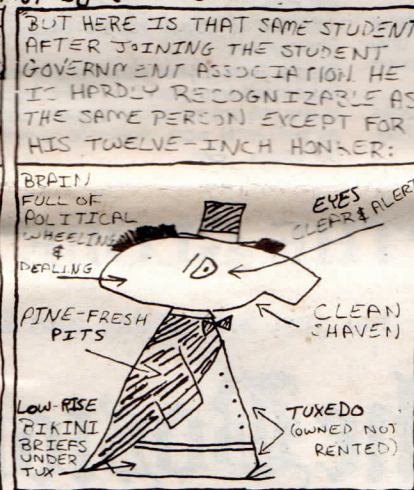 "BUT HERE IS THAT SAME STUDENT
AFTER JOINING THE STUDENT
GOVERNMENT ASSOCIATION. HE
IS HARDLY RECOGNIZABLE AS
THE SAME PERSON EXCEPT FOR
HIS TWELVE-INCH HONKER:
BRAIN
FULL OF
POLITICAL
WHEELING
&
DEALING
EYES
CLEAR & ALERT
PINE-FRESH
PITS
CLEAN
SHAVEN
LOW-RISE
BIKINI
BRIEFS
UNDER
TUX
TUXEDO
(OWNED NOT
RENTED)